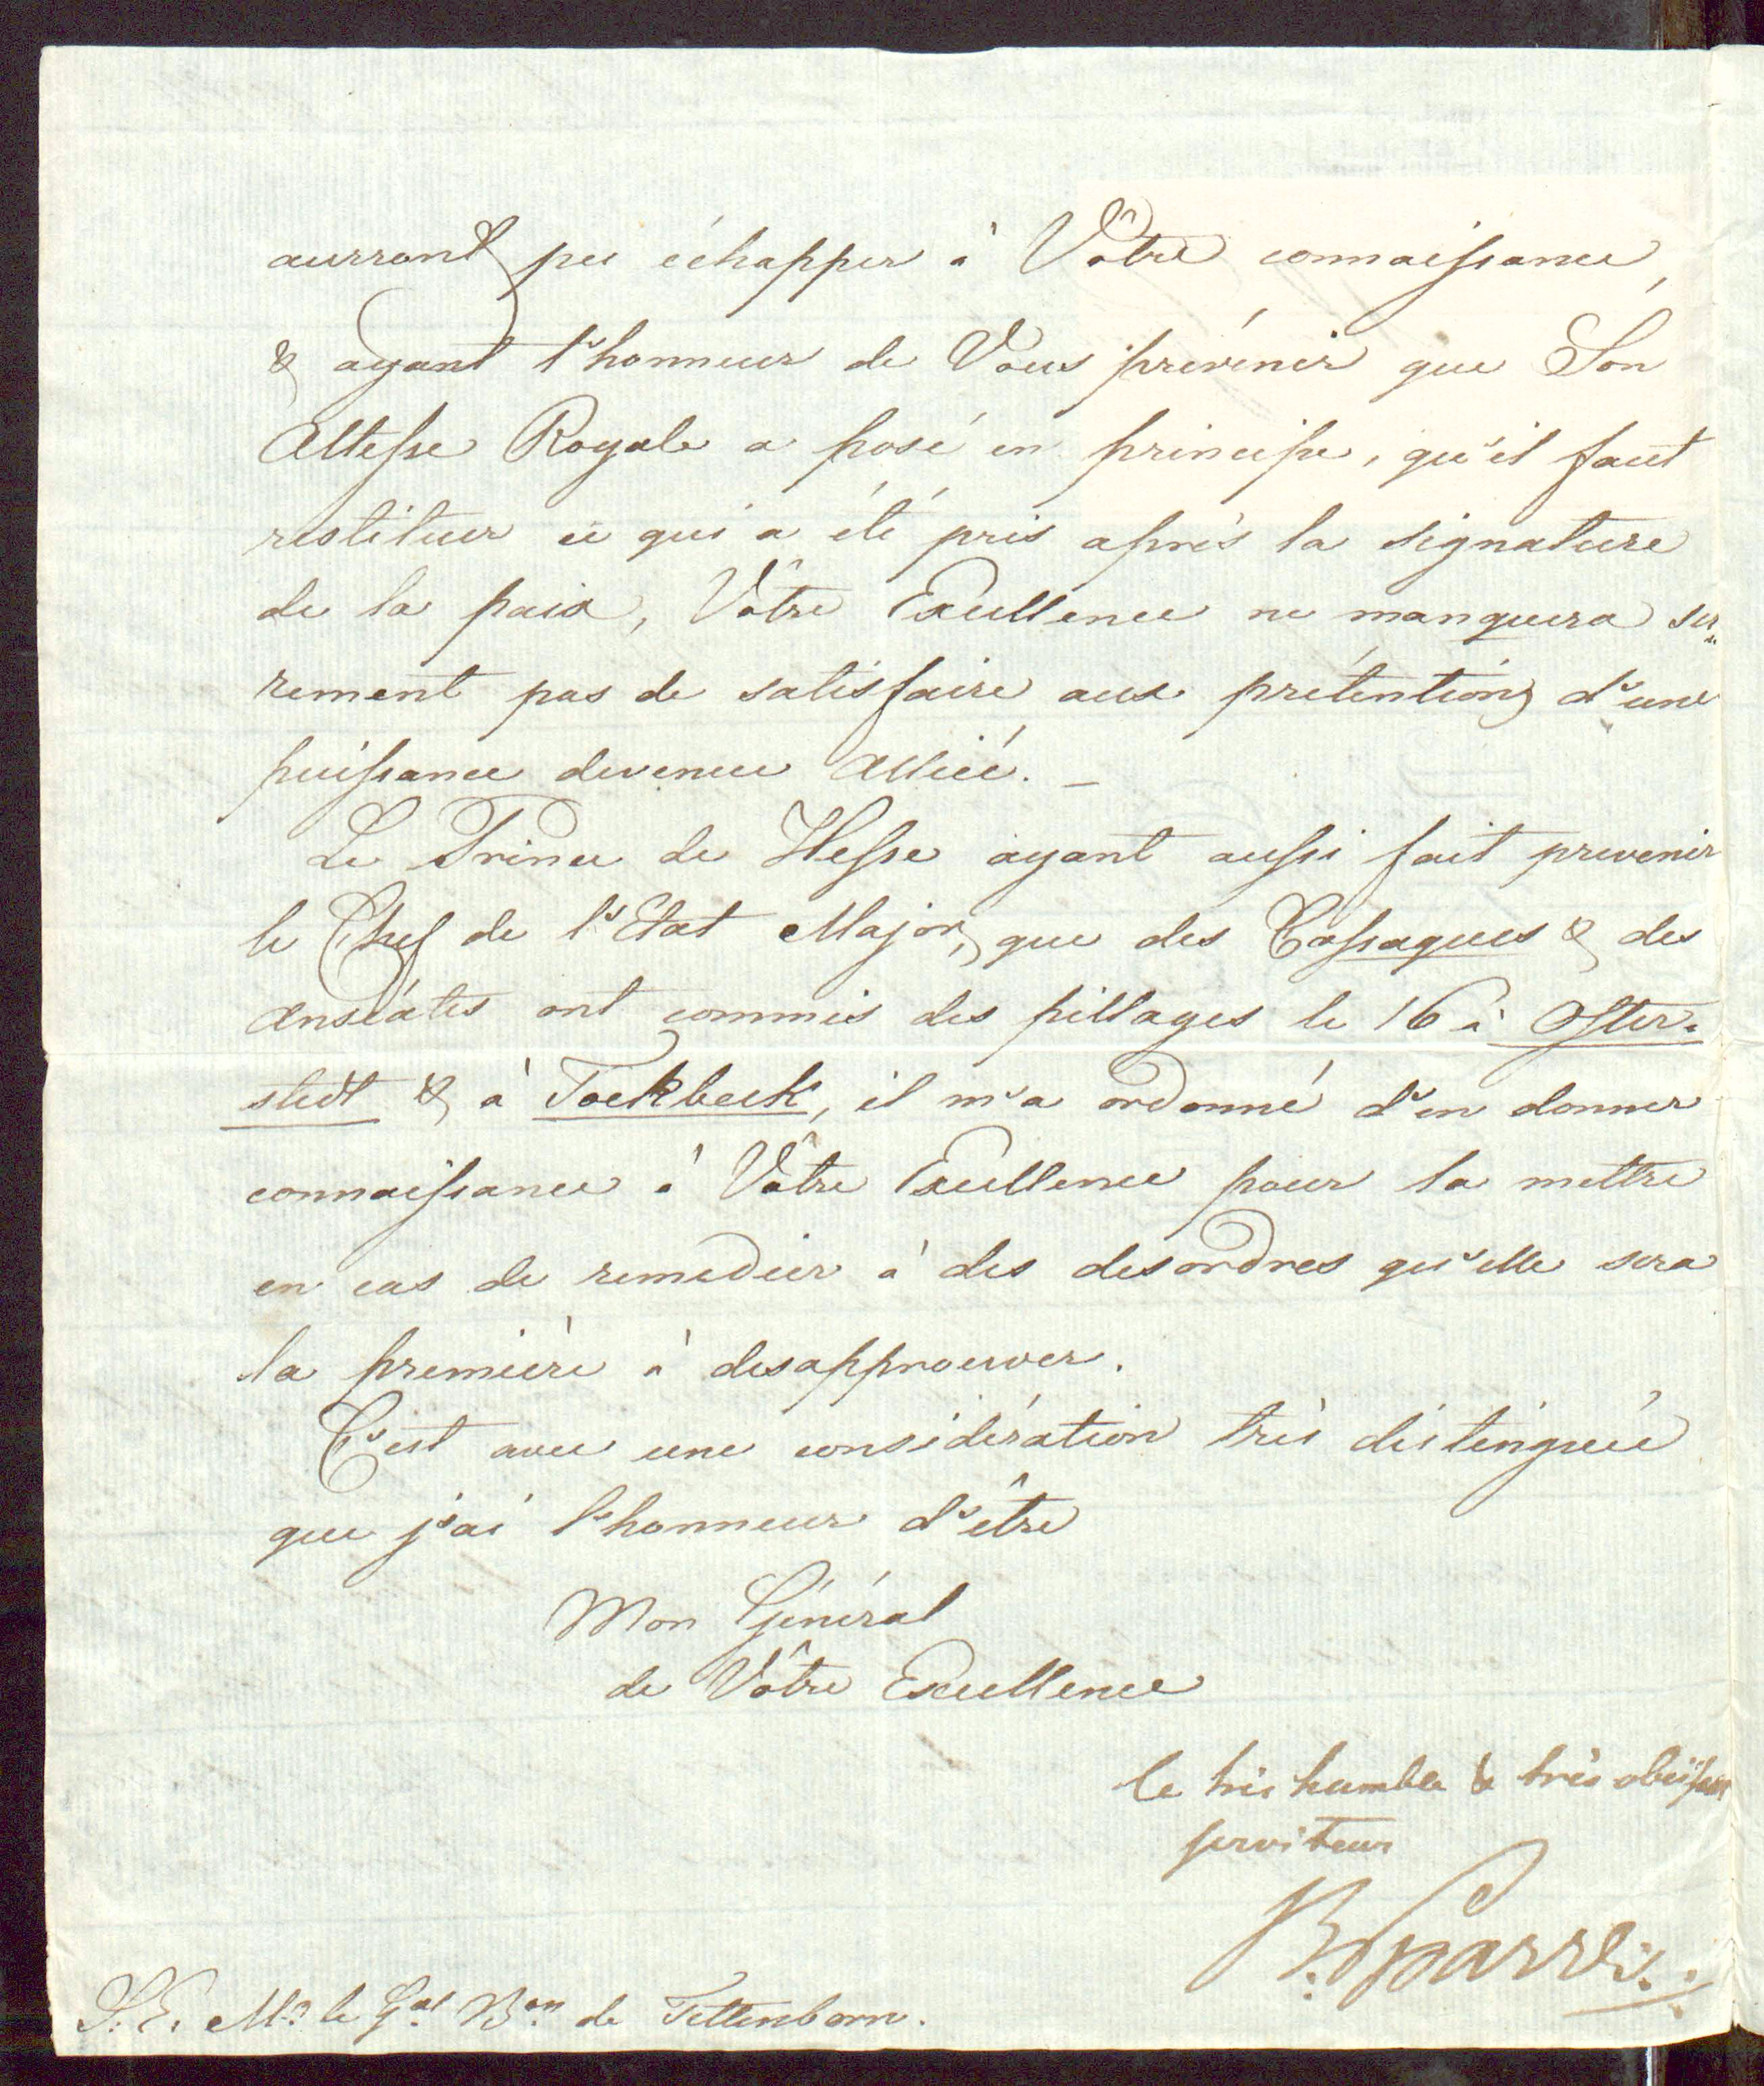 aurront pu échapper à Vôtre connaissance,
& ayant l'honneur de Vous prévenir que Son
Altesse Royale a posé en principe, qu'il faut
restituer ce qui a été pris après la signature
de la paix, Vôtre Excellence ne manquera su-
rement pas de satisfaire aux prétentions d'une
puissance devenue Alliée. _
Le Prince de Hesse ayant aussi fait prevenir
le Chef de l'Etat Major, que des Cosaques & des
Anséates ont commis des pillages le 16 à Oster-
stedt & à Tockbeck, il m'a ordonné d'en donner
connaissance à Vôtre Excellence pour la mettre
en cas de remedier à des desordres qu'elle sera
la première à desapprouver.
C'est avec une considération très distinguée
que j'ai l'honneur d'être
Mon Général
de Vôtre Excellence
le très humble & très obeissant
serviteur
B. Sparre.
S. E. Mr. le Gal. Bon. de Tettenborn.